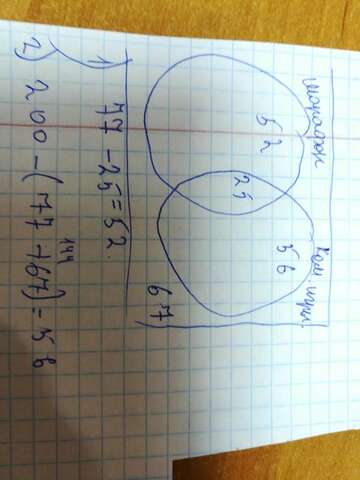 лошадки
комп. игры.
52
25
56
67
1) 77 - 25 = 52.
144
2) 200 - (77 + 67) = 56